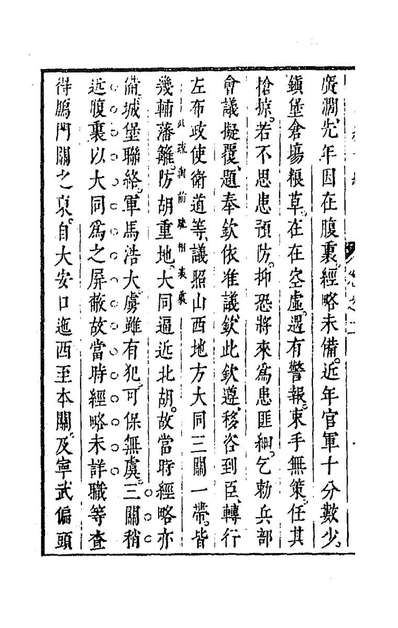 廣濶先年因在腹裏經略未備近年官軍十分數少
鎮堡倉塲粮草在在空虛遇有警報束手無策任其
搶掠若不思患預防抑恐將來爲患匪細乞勅兵部
會議擬覆題奉欽依准議欽此欽遵移咨到臣轉行
左布政使衛道等議照山西地方大同三關一帶皆
此疏與前疏相表裏
畿輔藩籬防胡重地大同逼近北胡故當時經略亦
備城堡聯絡軍馬浩大虜雖有犯可保無虞三關稍
近腹裏以大同爲之屏蔽故當時經略未詳職等查
得鴈門關之東自大安口迤西至本關及寧武偏頭